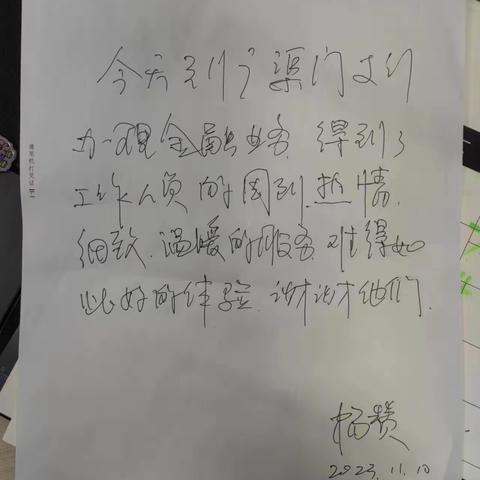 今天到了渠门支行
办理金融业务,得到了
工作人员的周到.热情.
细致.温暖的服务.难得如
此好的体验.谢谢他们.
杨赞
2023.11.10
通用机打凭证